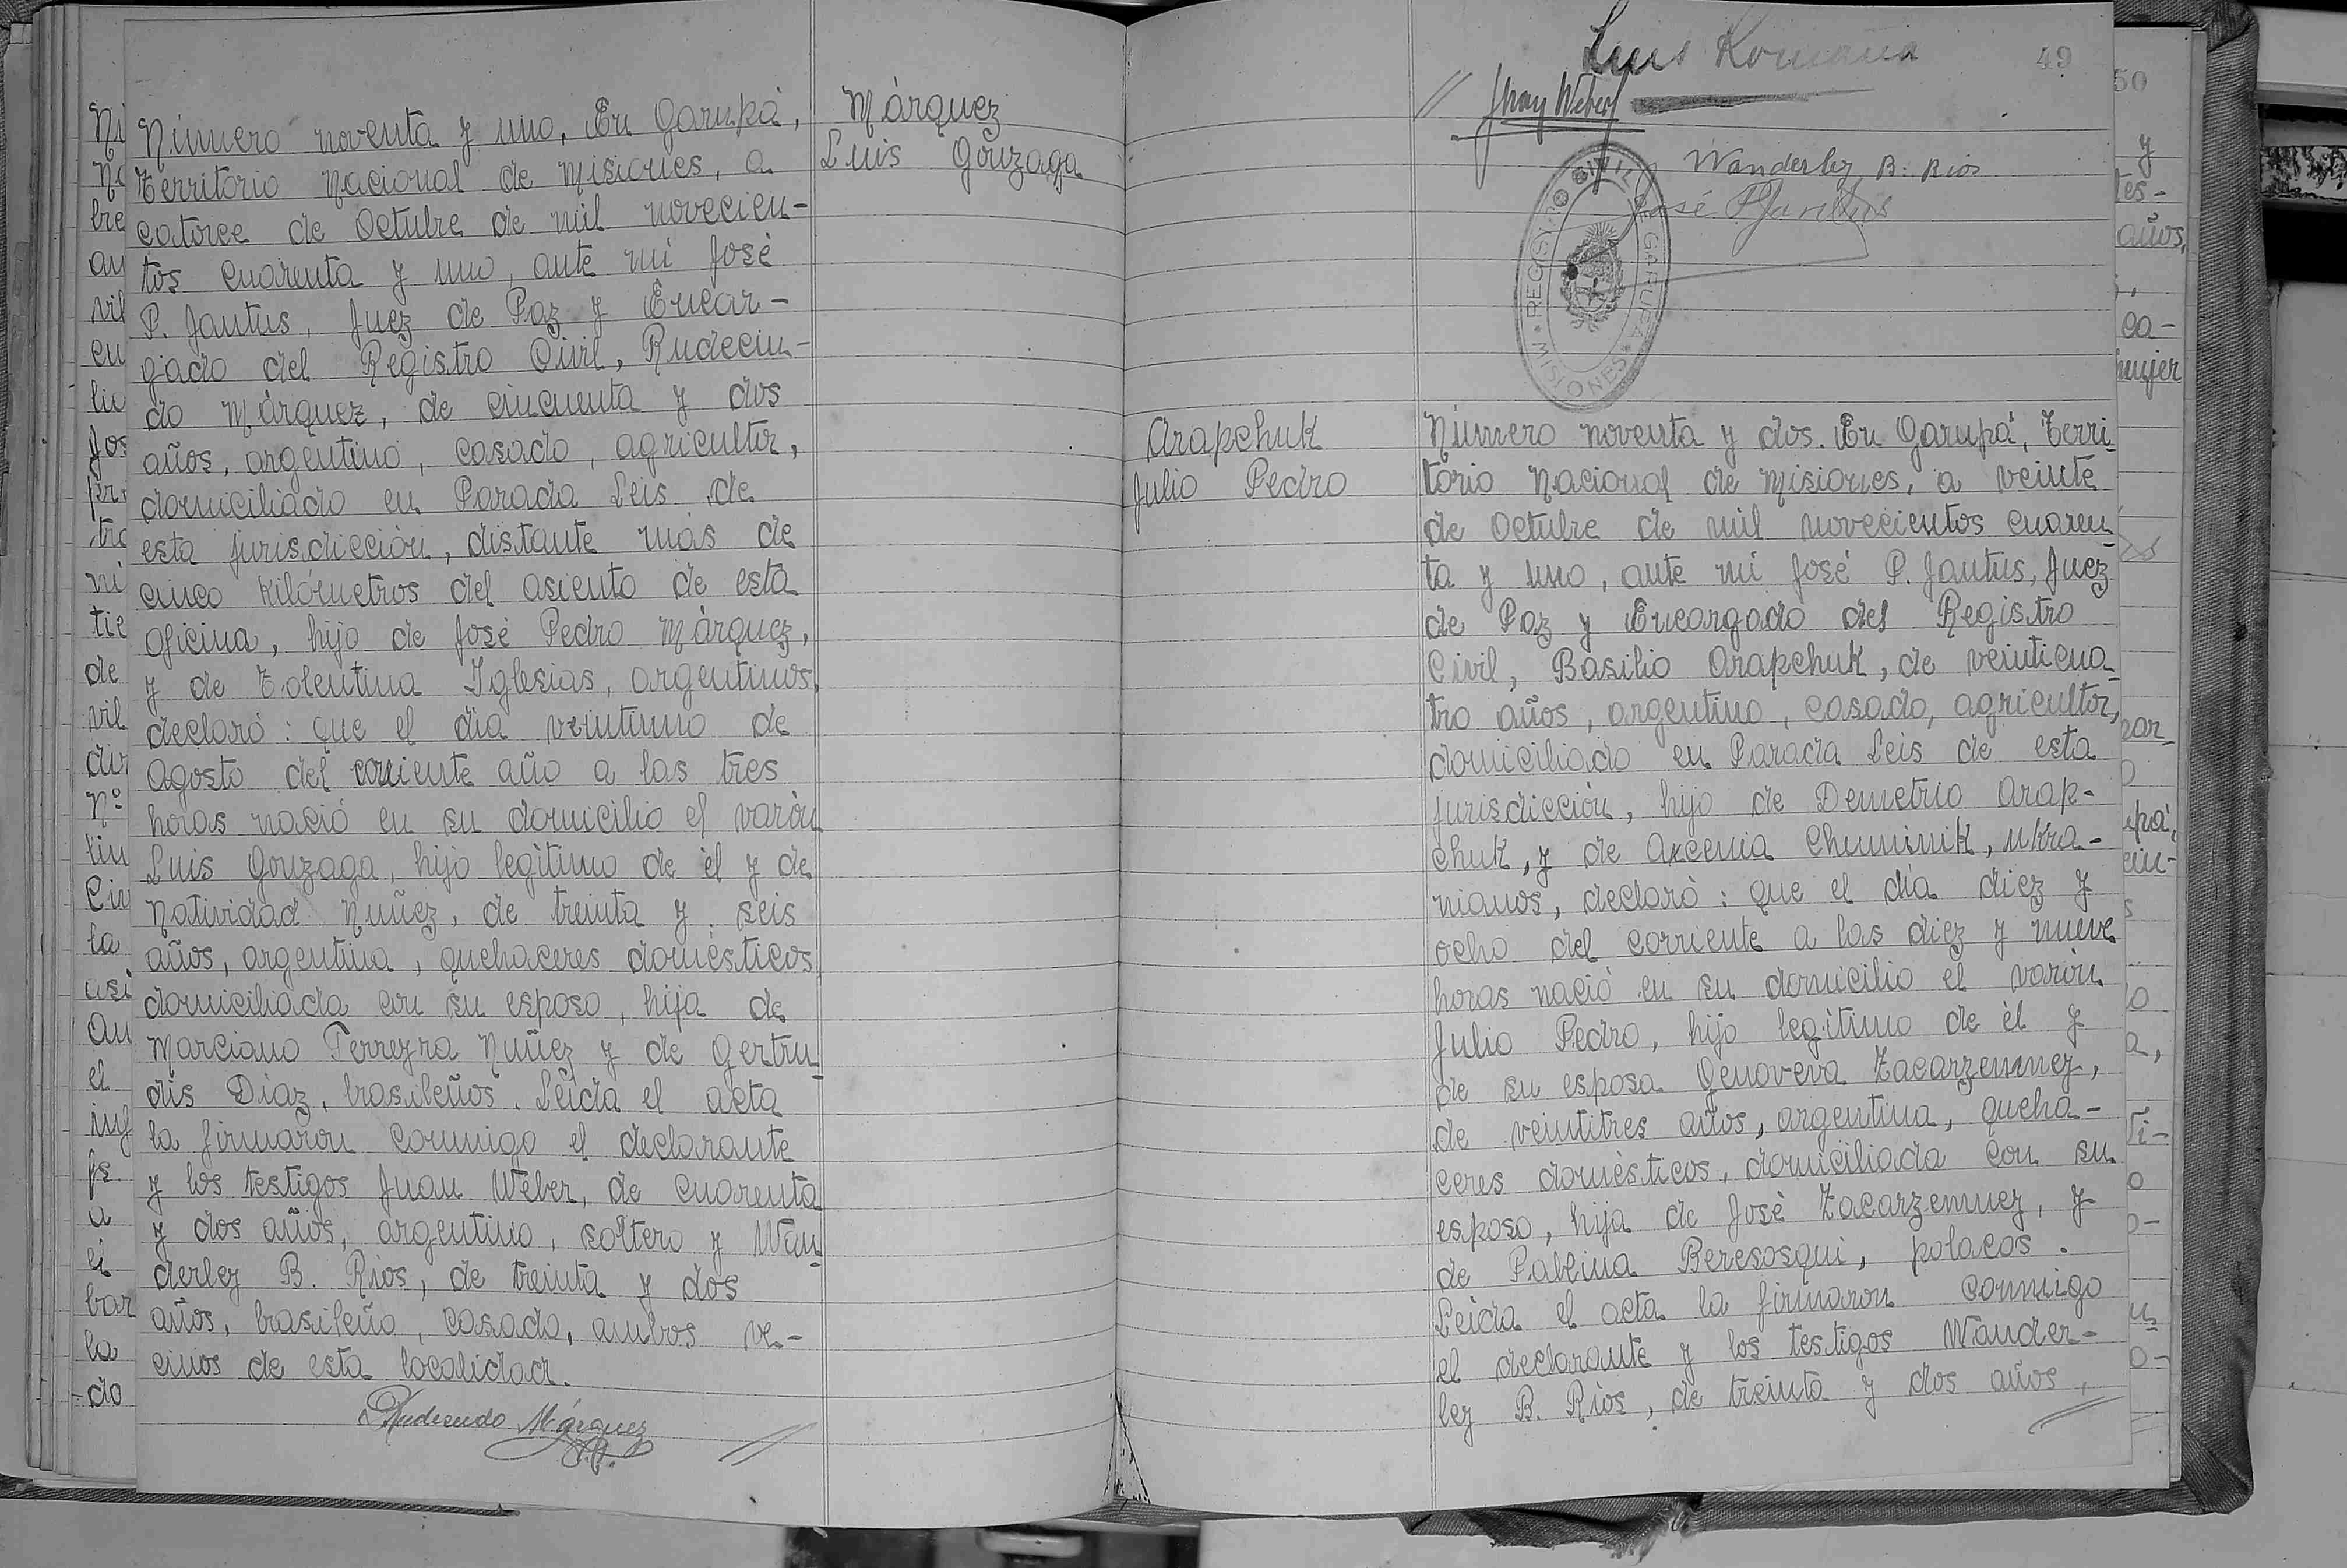 Número noventa y uno. En Garupá,
Territorio Nacional de Misiones, a
catorce de Octubre de mil novecien-
tos cuarenta y uno, ante mí José
P. Jantus, Juez de Paz y Encar-
gado del Registro Civil, Rudecin-
do Márquez, de cincuenta y dos
años, argentino, casado, agricultor,
domiciliado en Parada Leis de
esta jurisdicción, distante más de
cinco kilómetros del asiento de esta
oficina, hijo de José Pedro Márquez,
y de Tolentina Iglesias, argentinos,
declaró: que el día veintiuno de
Agosto del corriente año a las tres
horas nació en su domicilio el varón
Luis Gonzaga, hijo legítimo de él y de
Natividad Nuñez, de treinta y seis
años, argentina, quehaceres domésticos
domiciliada con su esposo, hija de
Marciano Ferreyra Nuñez y de Gertru-
dis Díaz, brasileños. Leída el acta
la firmaron conmigo el declarante
y los testigos Juan Weber, de cuarenta
y dos años, argentino, soltero y Wan-
derley B. Ríos, de treinta y dos
años, brasileño, casado, ambos ve-
cinos de esta localidad.
Rudesendo Márquez
Márquez
Luis Gonzaga
49
50
Luis Romaña
Juan Weber
Wanderley B. Rios
José P. Jantus
REGISTRO CIVIL GARUPA
MISIONES
Arapchuk
Julio Pedro
Número noventa y dos. En Garupá, Terri-
torio Nacional de Misiones, a veinte
de Octubre de mil novecientos cuaren-
ta y uno, ante mí José P. Jantus, Juez
de Paz y Encargado del Registro
Civil, Basilio Arapchuk, de veinticua-
tro años, argentino, casado, agricultor,
domiciliado en Parada Leis de esta
jurisdicción, hijo de Demetrio Arap-
chuk, y de Axcenia Chuminik, ukra-
nianos, declaró: que el día diez y
ocho del corriente a las diez y nueve
horas nació en su domicilio el varón
Julio Pedro, hijo legítimo de él y
de su esposa Genoveva Zacarzemnez,
de veintitres años, argentina, queha-
ceres domésticos, domiciliada con su
esposo, hija de José Zacarzemnez, y
de Pablina Beresosqui, polacos.
Leída el acta la firmaron conmigo
el declarante y los testigos Wander-
ley B. Ríos, de treinta y dos años,